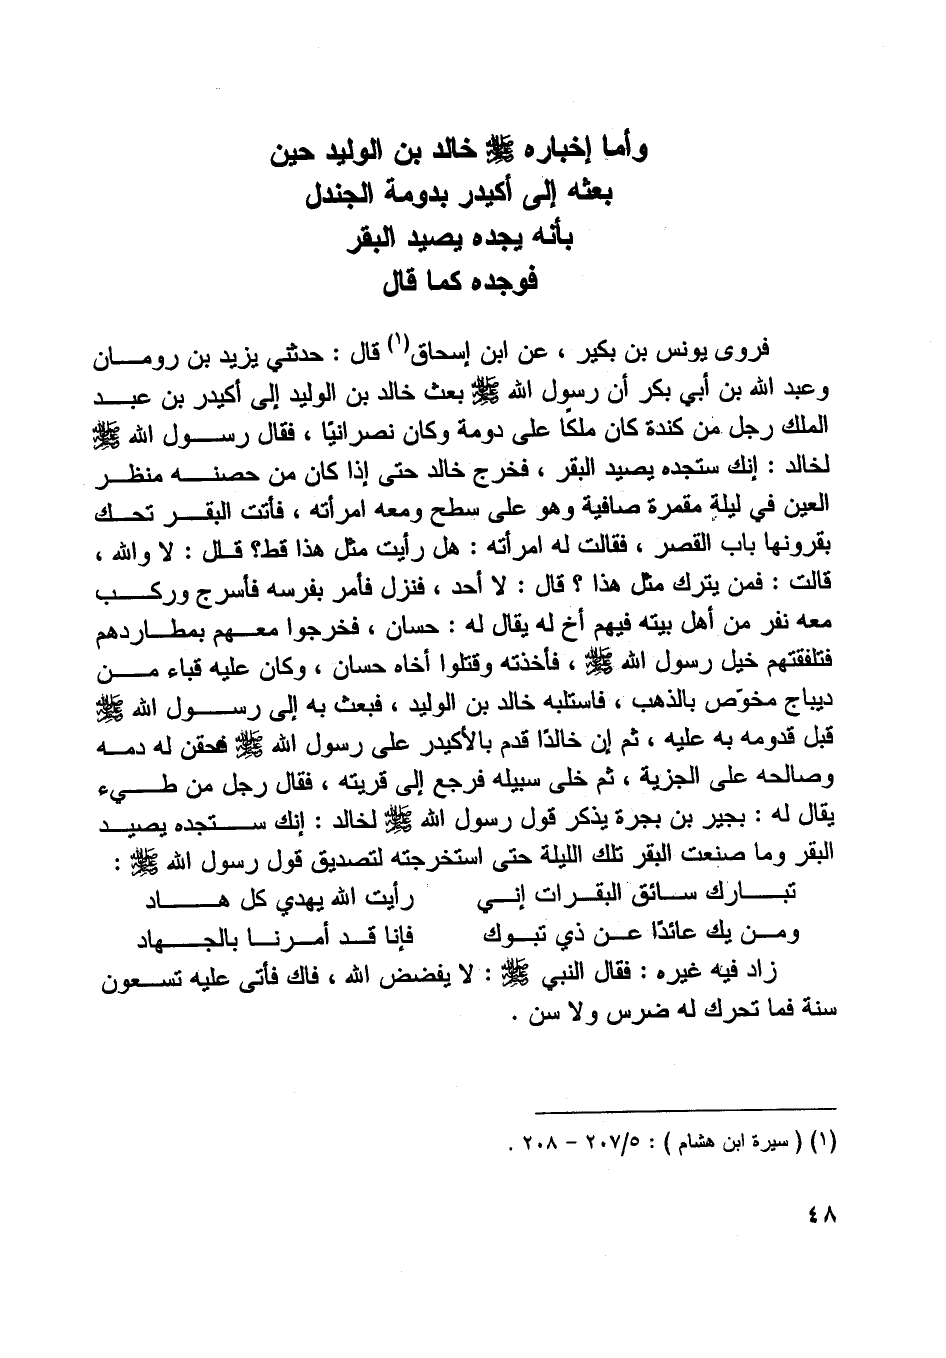 وأما إخباره ﷺ خالد بن الوليد حين
بعثه إلى أكيدر بدومة الجندل
بأنه يجده يصيد البقر
فوجده كما قال
فروى يونس بن بكير ، عن ابن إسحاق(١) قال : حدثني يزيد بن رومـــان
وعبد الله بن أبي بكر أن رسول الله ﷺ بعث خالد بن الوليد إلى أكيدر بن عبـــد
الملك رجل من كندة كان ملكًا على دومة وكان نصرانيًا ، فقال رســـول الله ﷺ
لخالد : إنك ستجده يصيد البقر ، فخرج خالد حتى إذا كان من حصنـــه منظـــر
العين في ليلةٍ مقمرة صافية وهو على سطح ومعه امرأته ، فأتت البقـــر تحـــك
بقرونها باب القصر ، فقالت له امرأته : هل رأيت مثل هذا قط؟ قــلل : لا والله ،
قالت : فمن يترك مثل هذا ؟ قال : لا أحد ، فنزل فأمر بفرسه فأسرج وركـــب
معه نفر من أهل بيته فيهم أخ له يقال له : حسان ، فخرجوا معـــهم بمطـــاردهم
فتلقفتهم خيل رسول الله ﷺ ، فأخذته وقتلوا أخاه حسان ، وكان عليه قباء مـــن
ديباج مخوّص بالذهب ، فاستلبه خالد بن الوليد ، فبعث به إلى رســـول الله ﷺ
قبل قدومه به عليه ، ثم إن خالدًا قدم بالأكيدر على رسول الله ﷺ فحقن له دمـــه
وصالحه على الجزية ، ثم خلى سبيله فرجع إلى قريته ، فقال رجل من طـــيء
يقال له : بجير بن بجرة يذكر قول رسول الله ﷺ لخالد : إنك ســـتجده يصيـــد
البقر وما صنعت البقر تلك الليلة حتى استخرجته لتصديق قول رسول الله ﷺ :
تبـــارك ســـائق البقـــرات إنـــي رأيت الله يهدي كل هـــاد
ومـــن يك عائدًا عـــن ذي تبـــوك فإنا قـــد أمـــرنـــا بالجـــهاد
زاد فيه غيره : فقال النبي ﷺ : لا يفضض الله ، فاك فأتى عليه تســـعون
سنة فما تحرك له ضرس ولا سن .
(١) ( سيرة ابن هشام ) : ٢٠٧/٥ – ٢٠٨ .
٤٨